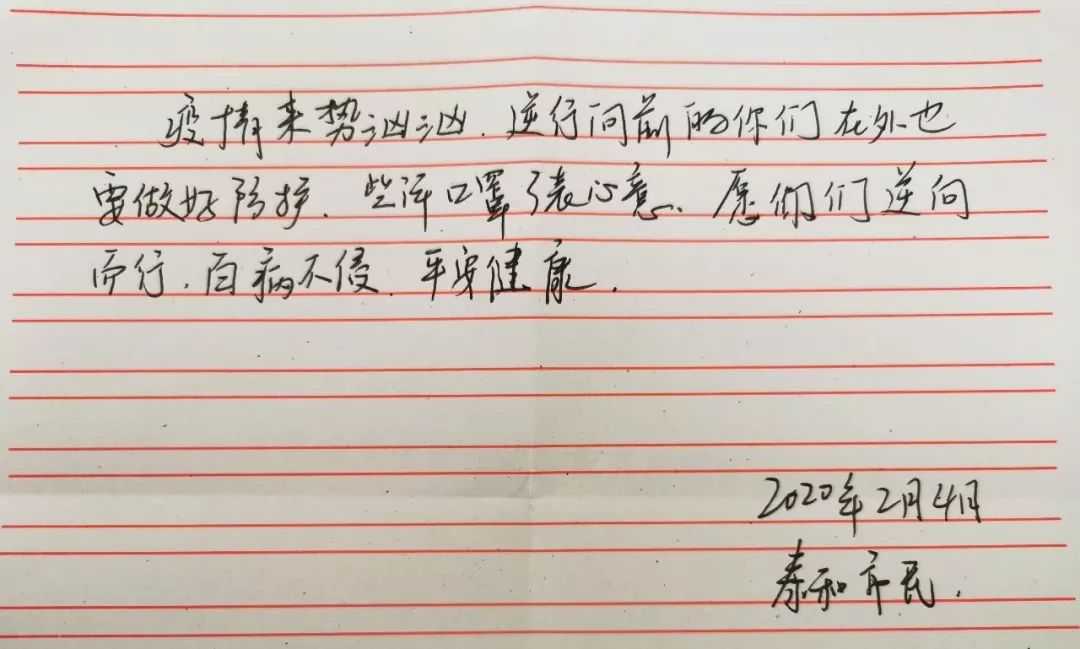 疫情来势汹汹，逆行向前的你们在外也
要做好防护，些许口罩了表心意、愿你们逆向
而行，百病不侵，平安健康.
2020年2月4日
泰和市民.